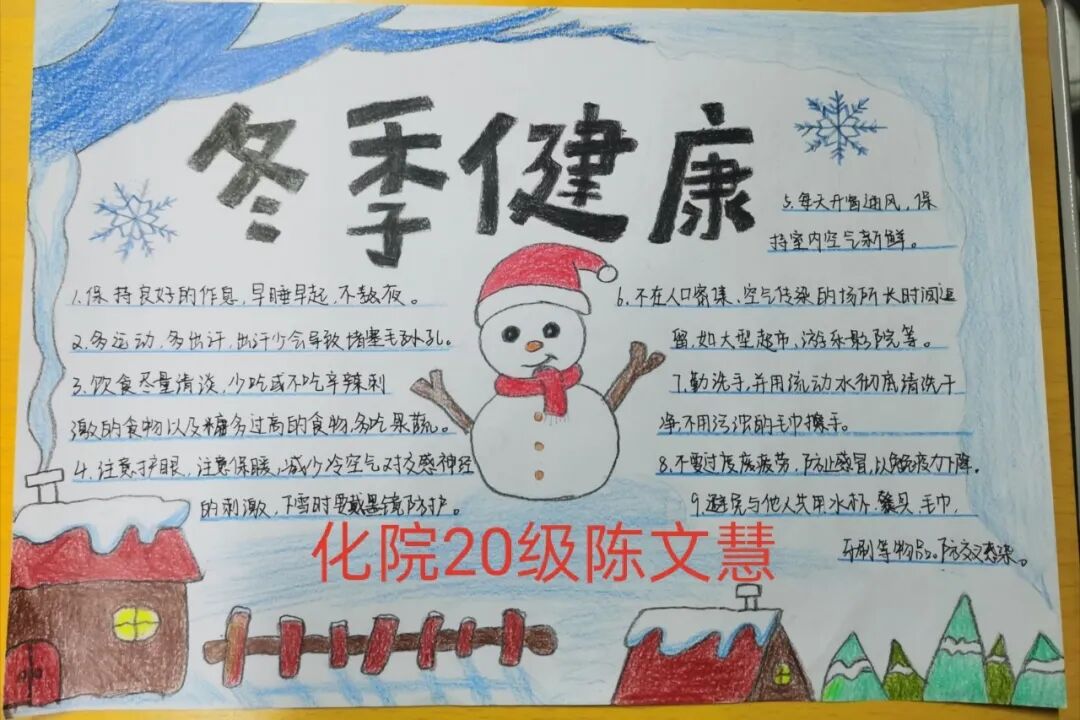 冬季健康
1.保持良好的作息,早睡早起,不熬夜。
2.多运动,多出汗,出汗少会导致堵塞毛孔。
3.饮食尽量清淡,少吃或不吃辛辣刺
激的食物以及糖分过高的食物,多吃果蔬。
4.注意护眼,注意保暖,减少冷空气对交感神经
的刺激,下雪时要戴墨镜防护。
5.每天开窗通风,保
持室内空气新鲜。
6.不在人口密集、空气传染的场所长时间逗
留,如大型超市、游乐影院等。
7.勤洗手,并用流动水彻底清洗干
净,不用污浊的毛巾擦手。
8.不要过度疲劳,防止感冒,以免免疫力下降。
9.避免与他人共用水杯、餐具、毛巾,
牙刷等物品。防交叉感染。
化院20级陈文慧